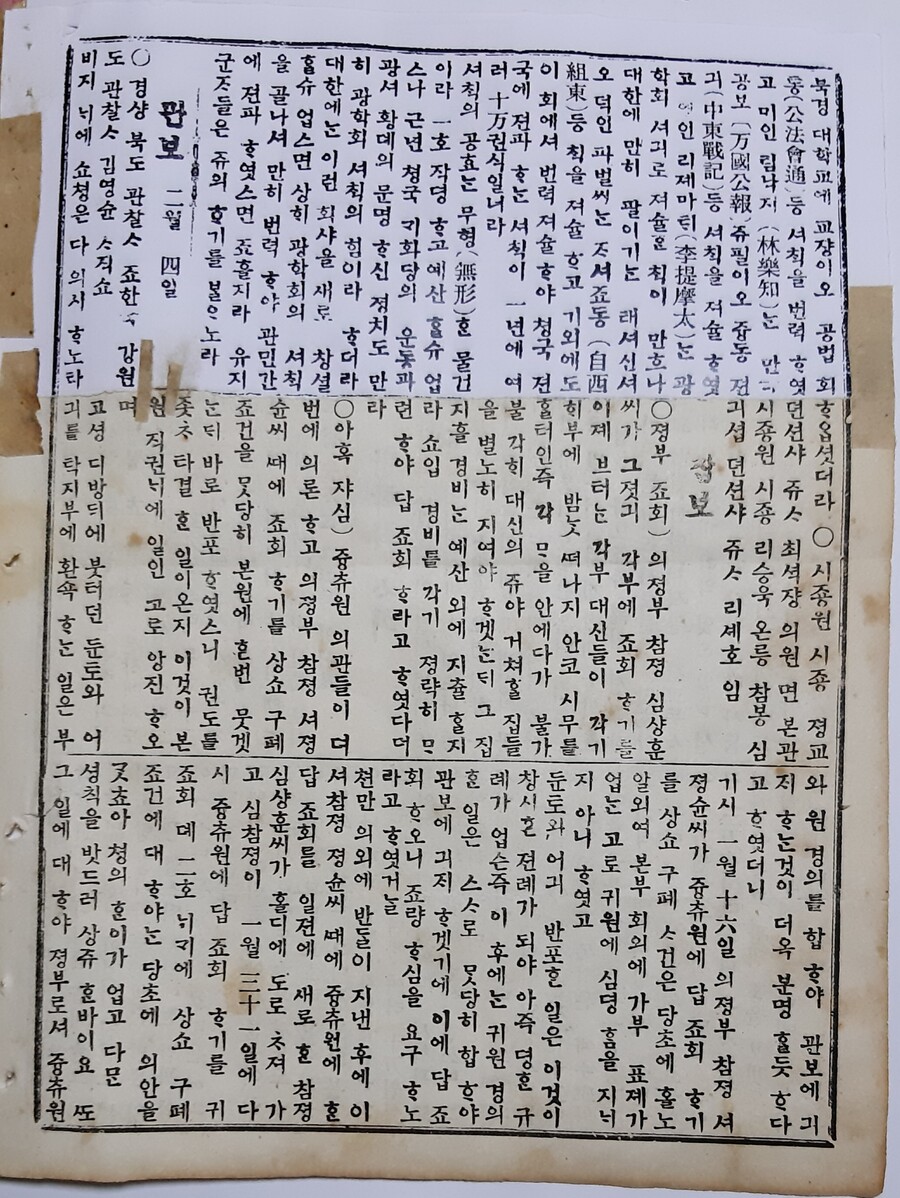 북경 대학교에 교쟝이오 공법 회
통(公法會通)등 셔칙을 번력 ᄒᆞ엿
고 미인 림낙지 (林樂知)는 만국
공보(万國公報)쥬필이오 즁동 젼
긔(中東戰記)등 셔칙을 져슐 ᄒᆞ엿
고 인 리제마틔(李提摩太)는 광
학회 셔긔로 져슐ᄒᆞᆫ 칙이 만흐나
대한에 만히 팔이기는 태셔신셔
오 덕인 파벌써는 ᄌᆞ셔죠동(自西
組東)등 칙을 져슐 ᄒᆞ고 기외에도
이 회에셔 번력져슐ᄒᆞ야 청국 젼
국에 젼파 ᄒᆞ는 셔칙이 一년에 여
러 十万권식일너라
셔칙의 공효는 무형(無形)ᄒᆞᆫ 물건
이라 一호 작뎡 ᄒᆞ고 예산 ᄒᆞᆯ슈 업
스나 근년 청국 긔화당의 운동과
광셔 황뎨의 문명 ᄒᆞ신 졍치도 만
히 광학회 셔칙의 힘이라 ᄒᆞ더라
대한에는 이런 회샤을 새로 창셜
ᄒᆞᆯ슈 업스면 상히 광학회의 셔칙
을 골나셔 만히 번력 ᄒᆞ야 관민간
에 젼파 ᄒᆞ엿스면 죠흘지라 유지
군ᄌᆞ들은 쥬의 ᄒᆞ기를 ᄇᆞᆯ으노라
관보 二월 四일
○ 경샹 북도 관찰ᄉᆞ 죠한국 강원
도 관찰ᄉᆞ 김영슌 ᄉᆞ직쇼
비지 늬에 쇼쳥은 다 의시 ᄒᆞ노타
ᄒᆞ옵셧더라 ○ 시죵원 시죵 졍교
뎐션샤 쥬ᄉᆞ 최셕쟝 의원 면 본관
시죵원 시죵 리승욱 온릉 참봉 심
긔셥 뎐션샤 쥬ᄉᆞ 리셰호 임
잡보
○졍부 죠회) 의졍부 참졍 심샹훈
씨가 그젓긔 각부에 죠회 ᄒᆞ기를
이졔 브터는 각부 대신들이 각기
히부에 밤낫 ᄯᅥ나지 안코 시무를
ᄒᆞᆯ터인즉 각 므을 안에다가 불가
불 각히 대신의 쥬야 거쳐ᄒᆞᆯ 집들
을 별노히 지여야 ᄒᆞ겟는ᄃᆡ 그 집
지흘 경비는 예산 외에 지츌 ᄒᆞᆯ지
라 쇼입 경비를 각기 졍략히 므
련 ᄒᆞ야 답 죠회 ᄒᆞ라고 ᄒᆞ엿다더
라
○아혹 쟈심) 즁츄원 의관들이 뎌
번에 의론 ᄒᆞ고 의졍부 참졍 셔졍
슌씨 ᄯᅢ에 죠회 ᄒᆞ기를 상쇼 구폐
죠건을 못당히 본원에 ᄒᆞᆫ번 뭇겟
는ᄃᆡ 바로 반포 ᄒᆞ엿스니 권도를
좃ᄎᆞ 타결 ᄒᆞᆫ 일이온지 이것이 본
원 직권늬에 일인 고로 앙진 ᄒᆞ오
며
고셩 디방듸에 붓터던 둔토와 어
긔를 탁지부에 환쇽 ᄒᆞ는 일은 부
와 원 경의를 합 ᄒᆞ야 관보에 긔
지 ᄒᆞ는것이 더옥 분명 ᄒᆞᆯ듯 ᄒᆞ다
고 ᄒᆞ엿더니
기시 一월 十六일 의졍부 참졍 셔
졍슌씨가 즁츄원에 답 죠회 ᄒᆞ기
를 상쇼 구폐 ᄉᆞ건은 당초에 홀노
알외여 본부 회외에 가부 표졔가
업는 고로 귀원에 심뎡 ᄒᆞᆷ을 지늬
지 아니 ᄒᆞ엿고
둔토와 어긔 반포ᄒᆞᆫ 일은 이것이
창시ᄒᆞᆫ 젼례가 되야 아즉 뎡ᄒᆞᆫ 규
례가 업슨즉 이 후에는 귀원 경의
ᄒᆞᆫ 일은 스스로 못당히 합 ᄒᆞ야
관보에 긔지 ᄒᆞ겟기에 이에 답 죠
회 ᄒᆞ오니 죠량 ᄒᆞ심을 요구 ᄒᆞ노
라고 ᄒᆞ엿거늘
쳔만 의외에 반들이 지낸 후에 이
셔참졍 졍슌씨 ᄯᅢ에 즁츄원에 ᄒᆞᆫ
답 죠회를 일젼에 새로 ᄒᆞᆫ 참졍
심샹훈씨가 홀디에 도로 ᄎᆞ져 가
고 심참졍이 一월 三十一일에 다
시 즁츄원에 답 죠회 ᄒᆞ기를 귀
죠회 뎨二호 늬기에 상쇼 구폐
죠건에 대 ᄒᆞ야는 당초에 의안을
ᄀᆞᆺ초아 쳥의 ᄒᆞᆫ이가 업고 다믄
셩칙을 밧드러 상쥬 ᄒᆞᆫ바이요 ᄯᅩ
그 일에 대 ᄒᆞ야 졍부로셔 즁츄원